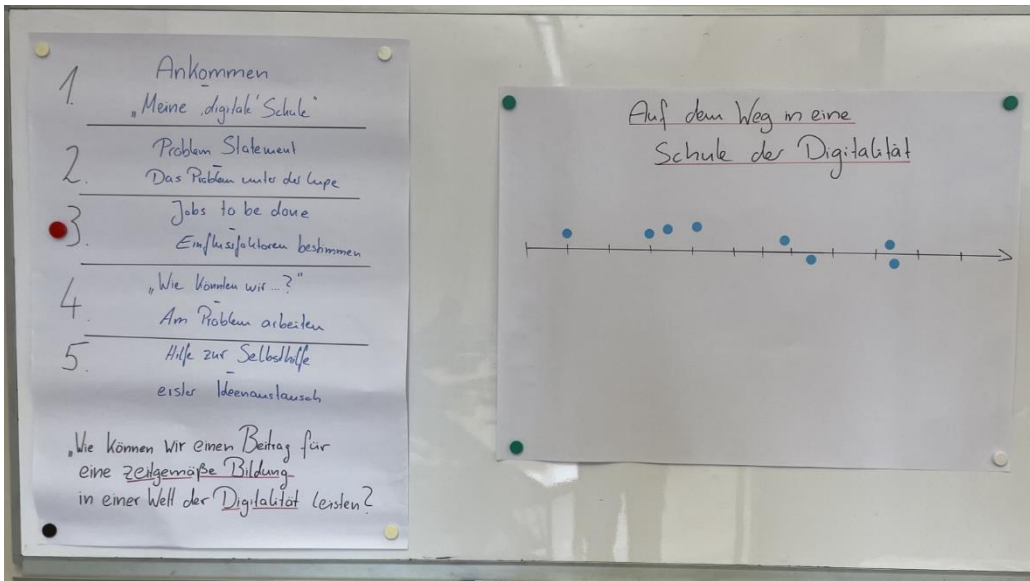 1. Ankommen
-
„Meine ‚digitale' Schule"
2. Problem Statement
-
Das Problem unter der Lupe
3. Jobs to be done
-
Einflussfaktoren bestimmen
4. „Wie könnten wir...?"
-
Am Problem arbeiten
5. Hilfe zur Selbsthilfe
-
erster Ideenaustausch
„Wie können wir einen Beitrag für
eine zeitgemäße Bildung
in einer Welt der Digitalität leisten?
Auf dem Weg in eine
Schule der Digitalität